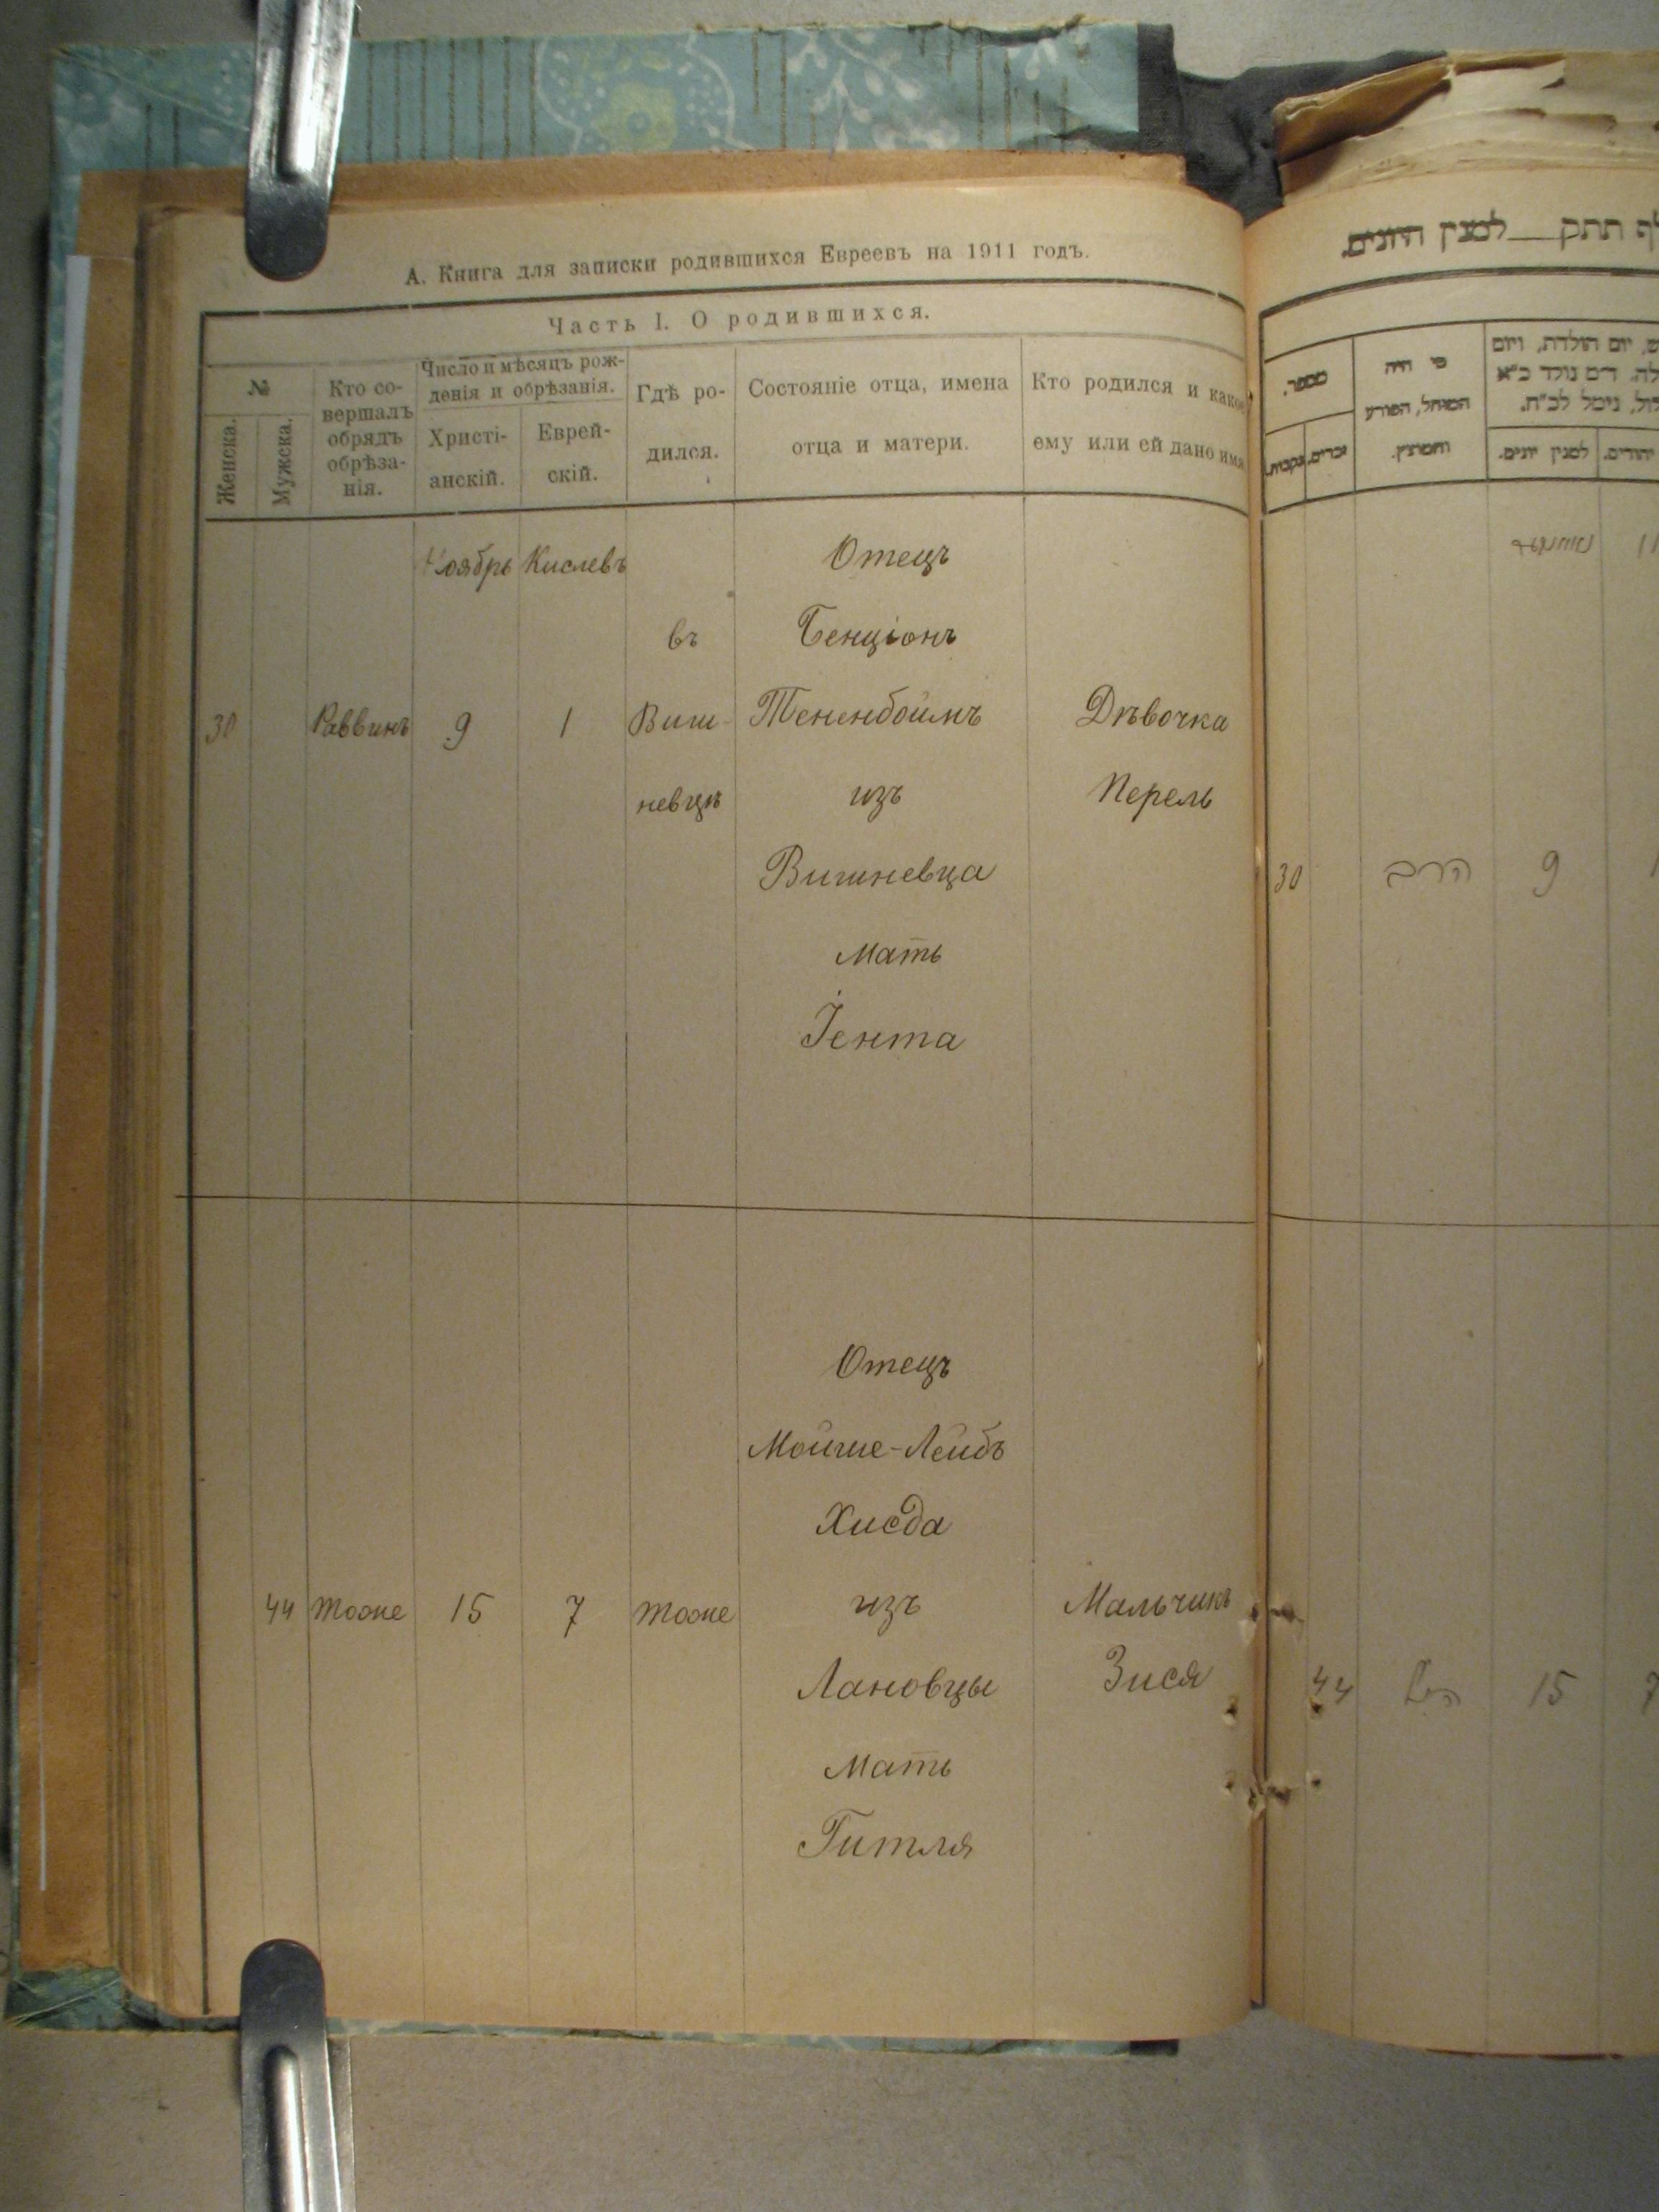 А. Книга для записки родившихся Евреевъ на 1911 годъ.
Часть I. О родившихся.
№
Женска.
Мужска.
Кто со-
вершалъ
обрядъ
обрѣза-
нія.
Число и мѣсяцъ рож-
денія и обрѣзанія.
Христі-
анскій.
Еврей-
скій.
Гдѣ ро-
дился.
Состояніе отца, имена
отца и матери.
Кто родился и какое
ему или ей дано имя
Ноябрь Кислевъ
30 Раввинъ 9 1
въ
Виш-
невцѣ
Отецъ
Бенціонъ
Тененбоймъ
изъ
Вишневца
Мать
Іента
Дѣвочка
Перель
44 тоже 15 7 тоже
Отецъ
Мойше-Лейбъ
Хисда
изъ
Лановцы
Мать
Гитля
Мальчикъ
Зися
תתק למנין היונים
מספר.
זכרים.
נקבות.
מי היה
המוהל, הפורע
והמוצץ.
יום הולדת, ויום
נולד כ"א
נימל לכ"ח.
למנין יונים.
יהודים.
30 הרב 9
44 הנ"ל 15 7